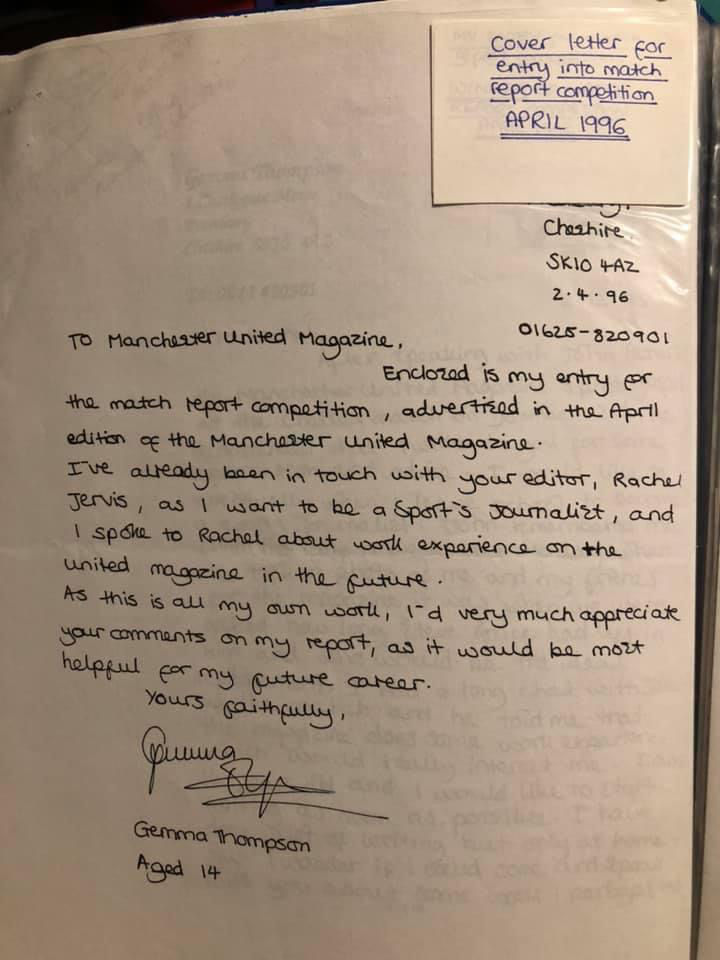 Cover letter for
entry into match
report competition
APRIL 1996
Cheshire.
SK10 4AZ
2.4.96
01625-820901
To Manchester United Magazine,
Enclosed is my entry for
the match report competition, advertised in the April
edition of the Manchester United Magazine.
I've already been in touch with your editor, Rachel
Jervis, as I want to be a Sport's Journalist, and
I spoke to Rachel about work experience on the
united magazine in the future.
As this is all my own work, I'd very much appreciate
your comments on my report, as it would be most
helpful for my future career.
Yours faithfully,
Gemma Thompson
Aged 14